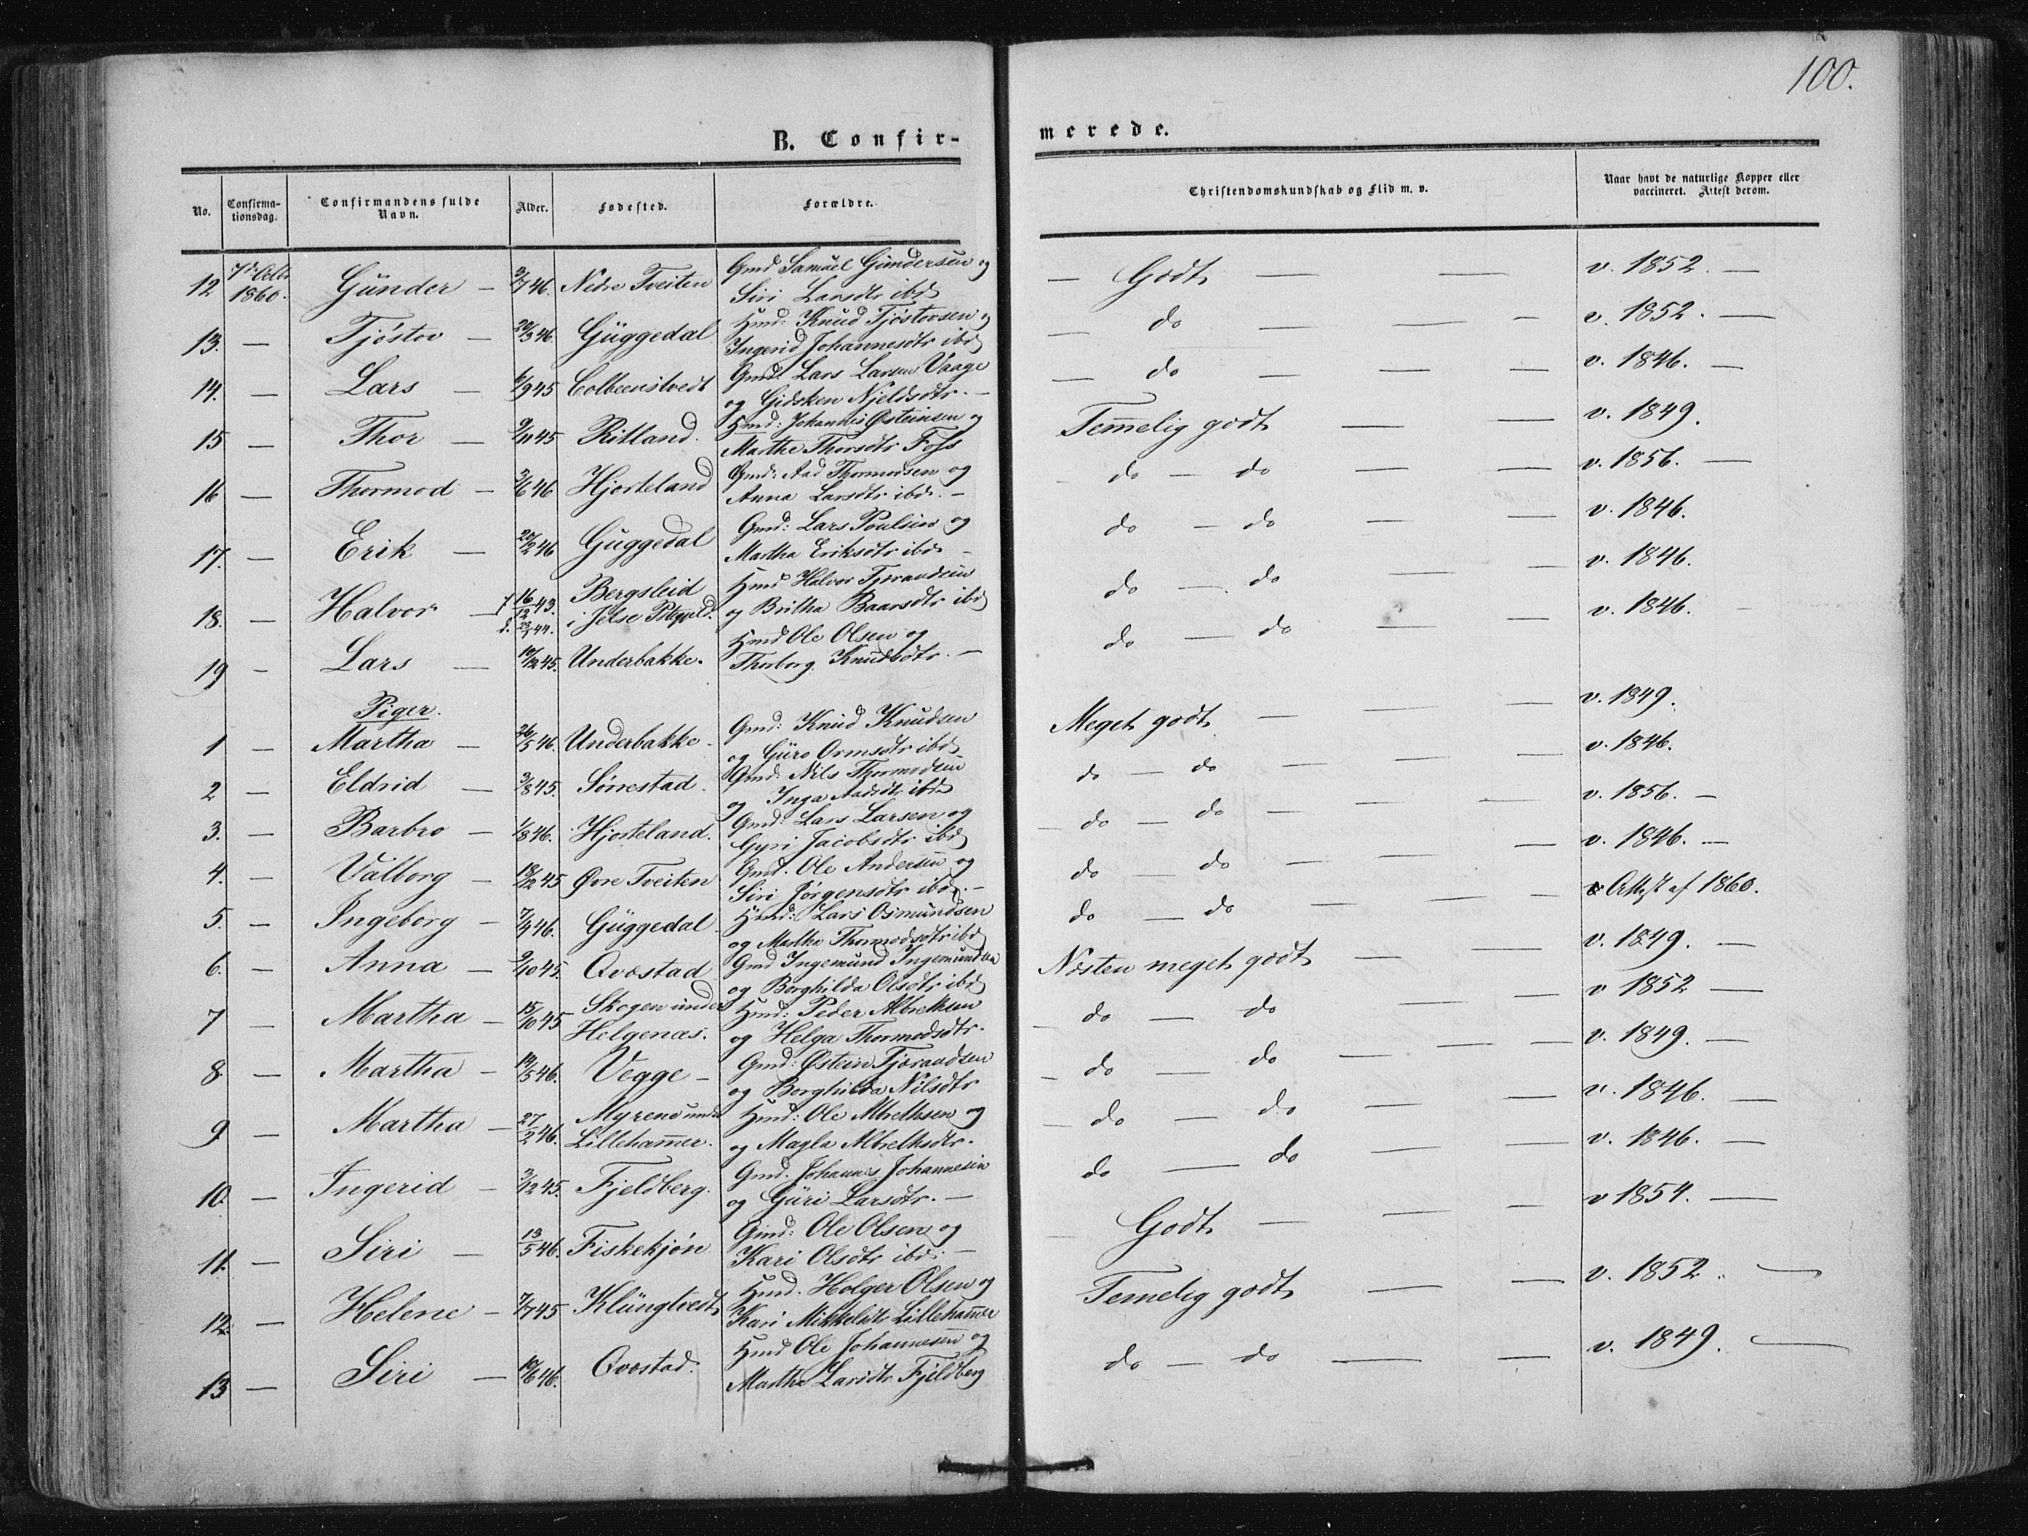 100.
B. Confir-
merede.
No.
Confirma-
tionsdag.
Confirmandens fulde
Navn.
Alder.
Fødested.
Forældre.
Christendomskundskab og Flid m. v.
Naar havt de naturlige Kopper eller
vaccineret. Attest derom.
12 7de Octbr 1860. Günder — 3/7 46. Nedre Tveiten Gmd Samuel Gundersen og
Siri Larsdtr ibd — Godt — — — v. 1852. —
13. — Tjöstov — 20/3 46. Güggedal Hmd: Knud Tjöstovsen og
Ingerid Johannesdtr ibd — do — — — v. 1852. —
14. — Lars — 6/9 45 Colbeenstvedt Gmd: Lars Larsen Vaage
og Gidsken Njeldsdtr. — — do — — — v. 1846. —
15 — Thor — 9/11 45 Ritland. Hmd: Johannes Østeinsen og
Marthe Thorsdtr Foss Temelig godt — — — v. 1849.
16 — Thormod — 2/6 46 Hjorteland Gmd: Aad Thormodsen og
Anna Larsdtr ibd. — do — do — — v. 1856. —
17. — Erik — 20/2 46 Guggedal Gmd: Lars Poulsen og
Martha Eriksdtr ibd — do — do — — v. 1846.
18. — Halvor — f 16/12 43. Bergsleid Hmd Halvor Tjerandsen
d. 23/1 44. i Jelse Pstgjeld. og Britha Baarsdtr ibd do — do — — v. 1846.
19 — Lars — 19/12 45. Underbakke. Hmd Ole Olsen og
Thorborg Knudsdtr. — do — do — — v. 1846.
Piger.
1 — Martha — 26/5 46. Underbakke. Gmd: Knud Knudsen
og Güro Ormsdtr ibd Meget godt — — — v. 1849.
2 — Eldrid — 3/8 45. Sörrestad. Gmd: Nils Thormodsen
og Inga Aadsdtr ibd do — do — — v. 1846.
3. — Barbro — 1/8 46. Hjorteland. Gmd: Lars Larsen og
Gyri Jacobsdtr ibd — do — do — — v. 1856. —
4. — Valborg — 18/12 45 Øvre Tveiten Gmd. Ole Andersen og
Siri Jørgensdtr ibd. — do — do — — v. 1846. —
5. — Ingeborg — 7/4 46. Güggedal. Hmd: Lars Osmundsen
og Martha Thormodsdtr ibd do — do — — Attest af 1860.
6. — Anna — 9/10 45. Qvæstad Gmd Ingemund Ingemundsen
og Borghilda Olsdtr ibd Næsten meget godt — — v. 1849. —
7 — Martha — 15/10 45 Skogen under Hmd: Peder Albrethsen
Helgenæs. og Helga Thormodsdtr. — do — do — — v 1852 —
8 — Martha — 14/5 46. Vegge — Gmd: Østein Tjerandsen
og Borghilda Nilsdtr — do — do — — v. 1849. —
9 — Martha — 27/2 46. Myrene under Hmd: Ole Albrethsen og
Lillehamer. og Magla Albrethsdtr. — do — do — — v. 1846. —
10. — Ingerid — 3/12 45. Fjeldberg. Gmd. Johannes Johannesen
og Güri Larsdtr. — do — do — — v. 1846. —
11. — Siri — 13/5 46. Fiskekjøn Gmd: Ole Olsen og
Kari Olsdtr ibd. — Godt — — — v 1854. —
12. — Helene — 7/7 45 Klüngtvedt Hmd. Holger Olsen og
Kari Mikkelsdtr Lillehamer Temelig godt — — v. 1852. —
13 — Siri — 19/6 46. Qvæstad. Hmd Ole Johannesen og
Martha Larsdtr Fjeldberg do — do — — v. 1849. —